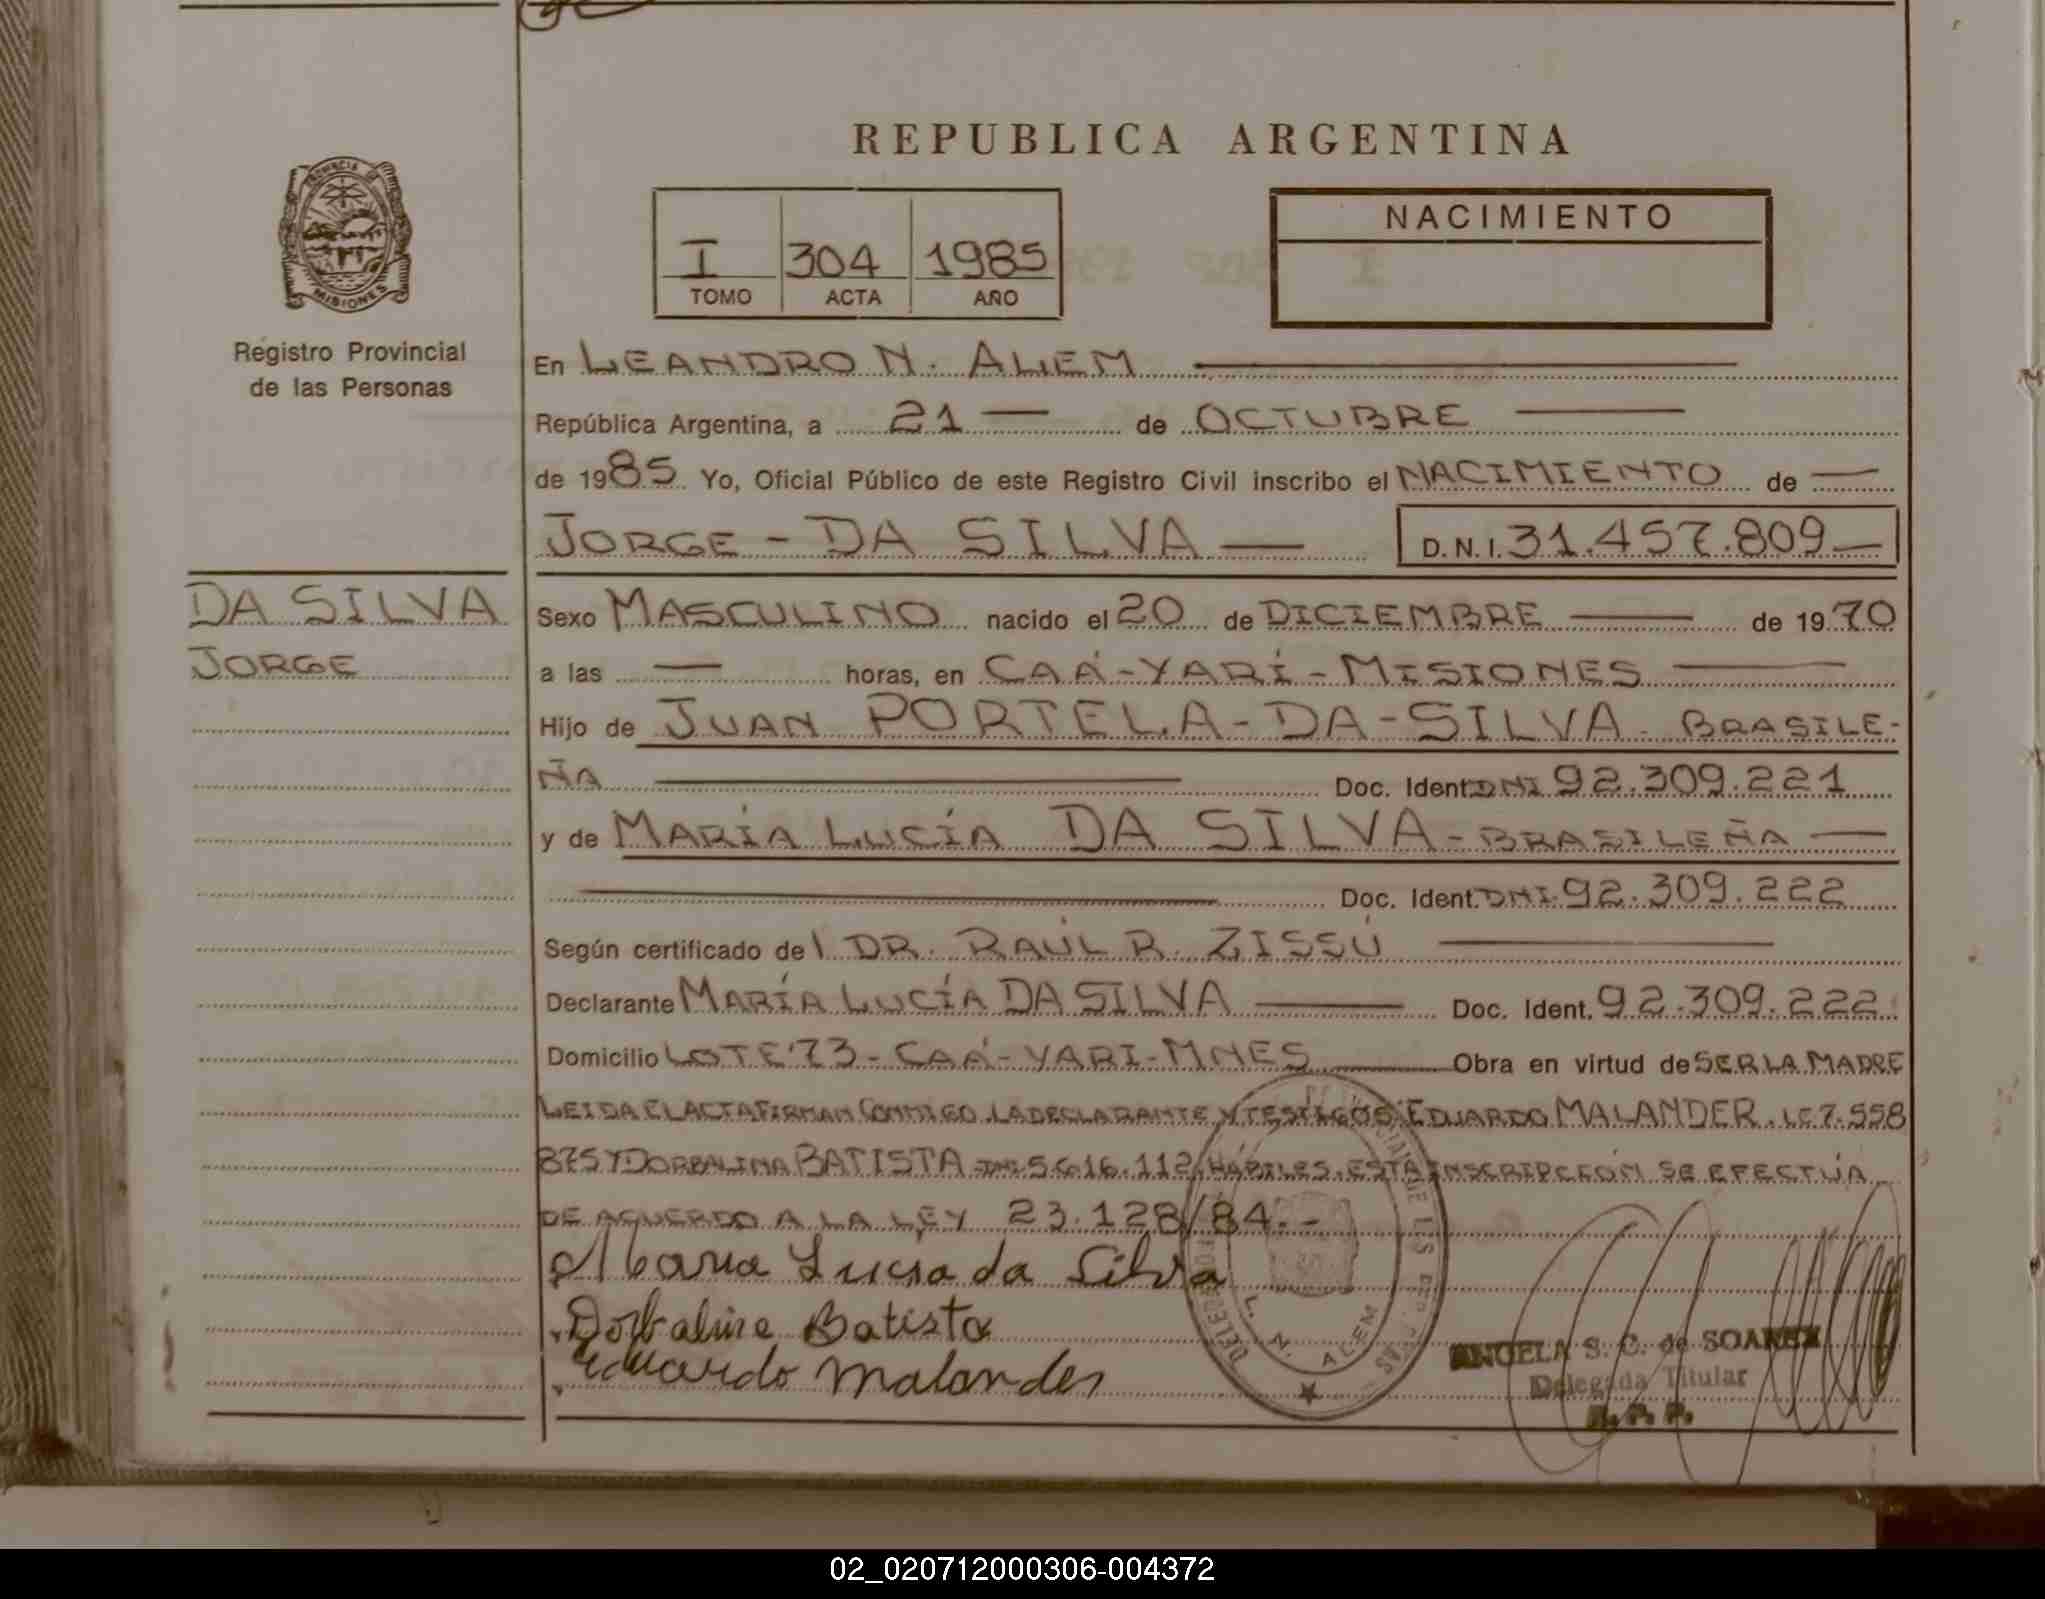 REPUBLICA ARGENTINA
PROVINCIA DE
MISIONES
Registro Provincial
de las Personas
I 304 1985
TOMO ACTA AÑO
NACIMIENTO
En LEANDRO N. ALEM
República Argentina, a 21 de OCTUBRE
de 1985 Yo, Oficial Público de este Registro Civil inscribo el NACIMIENTO de
JORGE - DA SILVA D.N.I. 31.457.809
DA SILVA
JORGE
Sexo MASCULINO nacido el 20 de DICIEMBRE de 1970
a las — horas, en CAÁ-YARÍ-MISIONES
Hijo de JUAN PORTELA-DA-SILVA. BRASILE-
ÑA Doc. Ident. DNI 92.309.221
y de MARÍA LUCÍA DA SILVA-BRASILEÑA
Doc. Ident. DNI. 92.309.222
Según certificado del DR. RAÚL R. ZISSÚ
Declarante MARÍA LUCÍA DA SILVA Doc. Ident. 92.309.222
Domicilio LOTE 73-CAÁ-YARI-MNES Obra en virtud de SER LA MADRE
LEIDA EL ACTA FIRMAN CONMIGO LA DECLARANTE Y TESTIGOS: EDUARDO MALANDER. LE 7.558
875 Y DORBALINA BATISTA 5.616.112, HÁBILES. ESTA INSCRIPCIÓN SE EFECTÚA
DE ACUERDO A LA LEY 23.128/84.-
Maria Lucia da Silva
Dorbaline Batista
Eduardo Malander
L. N. ALEM
ANGELA S. C. de SOAREZ
Delegada Titular
R. P. P.
02_020712000306-004372